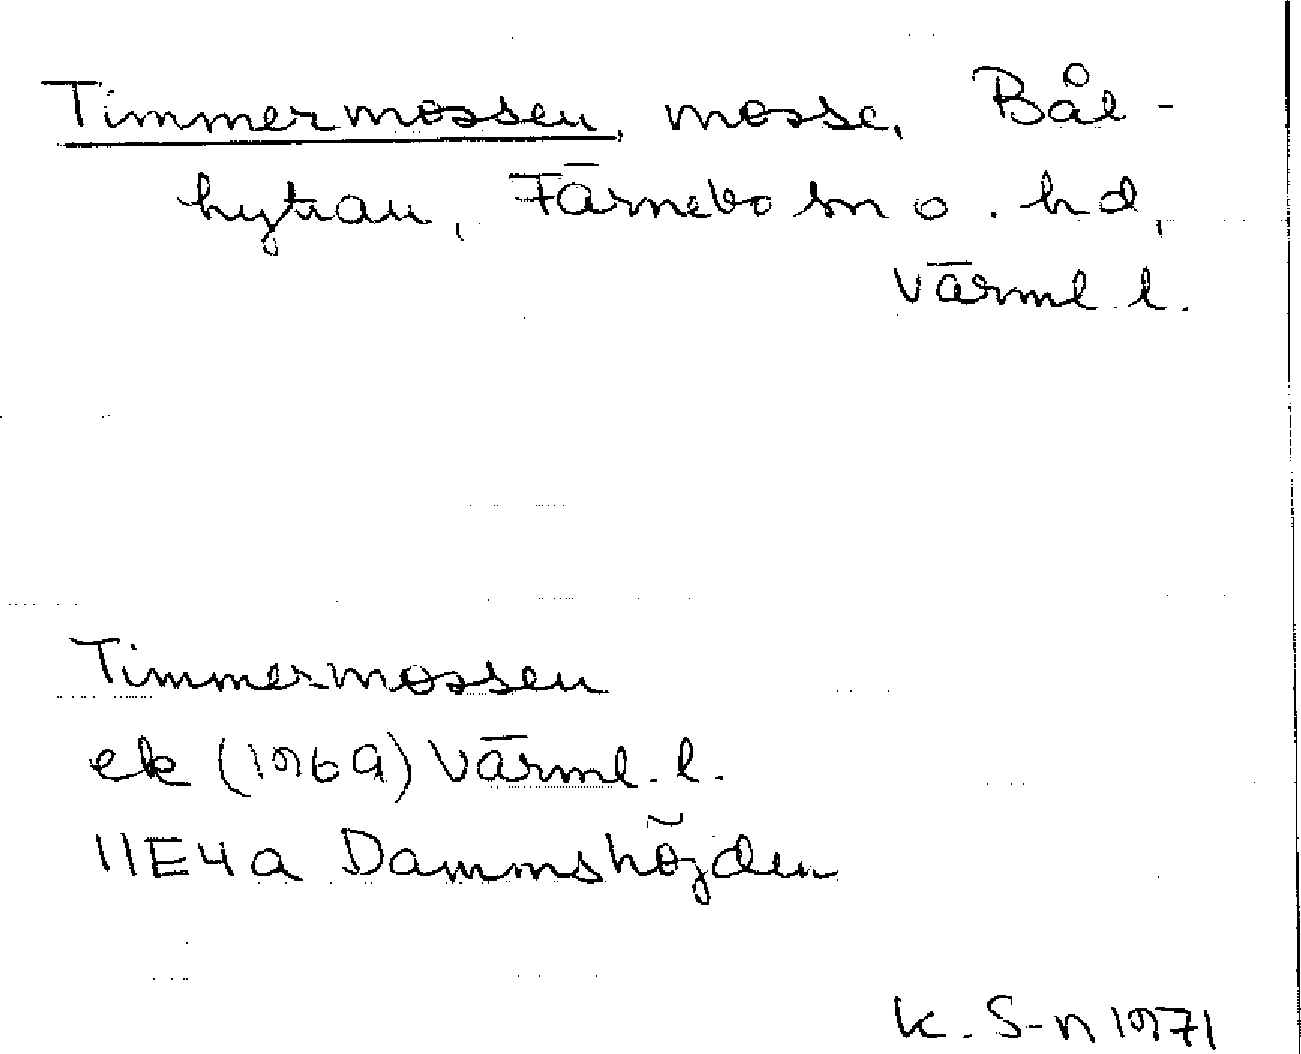 Timmermossen, mosse, Bål-
hyttan, Färnebo sn o. hd,
Värml. l.
Timmermossen
ek (1969) Värml. l.
11E4a Dammshöjden
K. S-n 1971